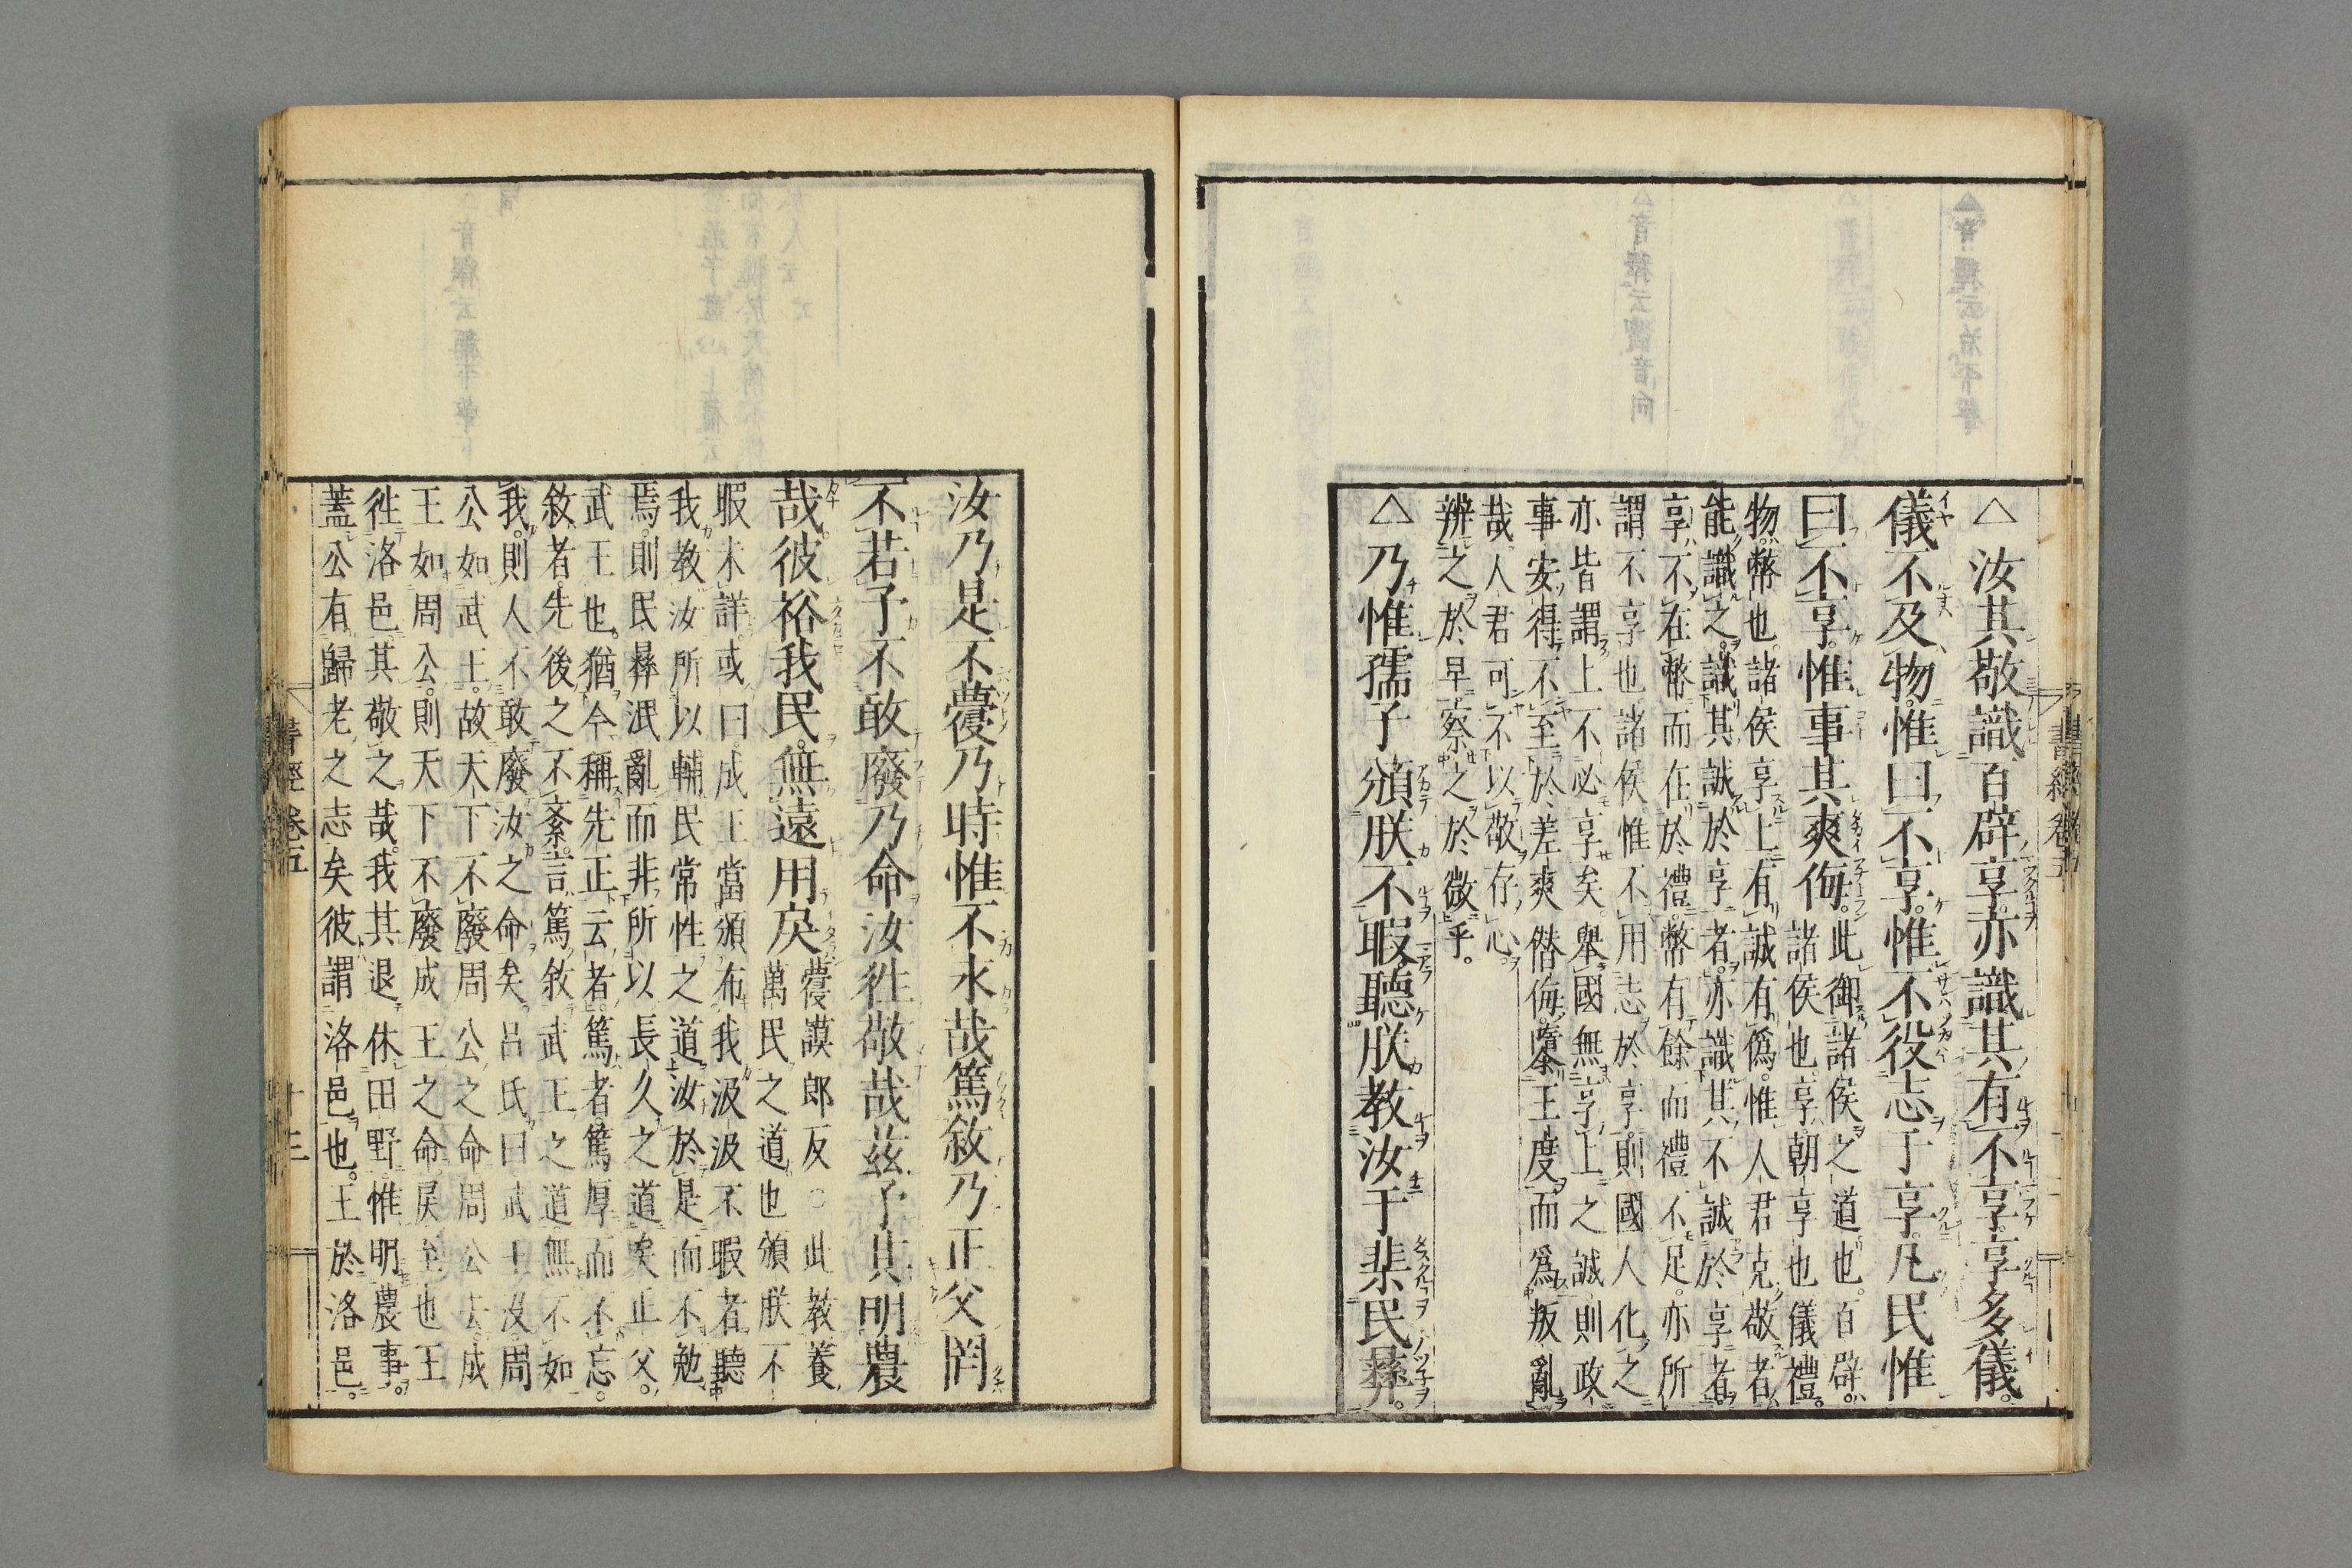 △汝其敬識百辟享。亦識其有不享。享多儀。
儀不及物。惟曰不享。惟不役志于享。凡民惟
曰不享。惟事其爽侮。此御諸侯之道也。百辟。
諸侯也。享。朝享也儀禮。
物。幣也。諸侯享上有誠有僞。惟人君克敬者
能識之。識其誠於享者。亦識其不誠於享者。
享不在幣而在於禮。幣有餘而禮不足。亦所
謂不享也諸侯惟不用志於享。則國人化之
亦皆謂上不必享矣。舉國無享上之誠則政
事安得不至於差爽僭侮。隳王度而爲叛亂
哉。人君可不以敬存心。
辨之於早。察之於微乎。
△乃惟孺子頒朕不暇。聽朕教汝于棐民彝。
書經卷五
汝乃是不蘉乃時惟不永哉篤敘乃正父罔
不若予不敢廢乃命汝徃敬哉茲予其明農
哉。彼裕我民。無遠用戾蘉謨郎反○此教養
萬民之道也頒朕不
暇未詳。或曰。成王當頒布我汲汲不暇者。聽
我教汝所以輔民常性之道汝於是而不勉
焉。則民彝泯亂而非所以長久之道矣正父。
武王也。猶今稱先正云者。篤者。篤厚而不忘。
敘者。先後之不紊。言篤敘武王之道無不如
我。則人不敢廢汝之命矣。呂氏曰武王沒。周
公如武王。故天下不廢周公之命周公去。成
王如周公。則天下不廢成王之命。戾至也王
徃洛邑其敬之哉。我其退休田野惟明農事。
蓋公有歸老之志矣彼謂洛邑也。王於洛邑。
書經卷五
十三